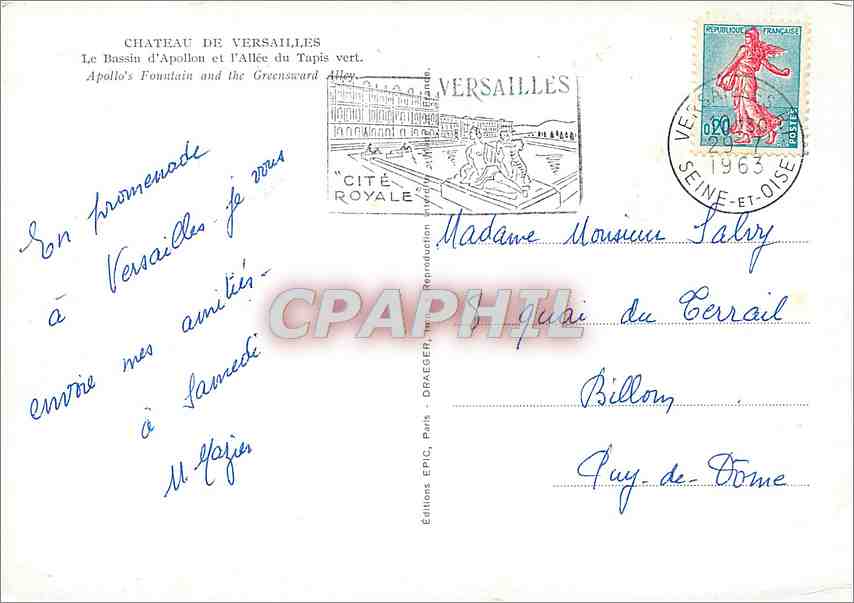 CHATEAU DE VERSAILLES
Le Bassin d'Apollon et l'Allée du Tapis vert.
Apollo's Fountain and the Greensward Alley.
VERSAILLES
"CITÉ
ROYALE"
REPUBLIQUE FRANÇAISE
0,20
POSTES
VERSAILLES
29-7
1963
SEINE-ET-OISE
En promenade
à Versailles je vous
envoie mes amitiés -
à Samedi
M. Mazier
Éditions EPIC, Paris - DRAEGER, Imp. Reproduction interdite France.
Madame Monsieur Salvy
quai du Terrail
Billom
Puy-de-Dome
CPAPHIL